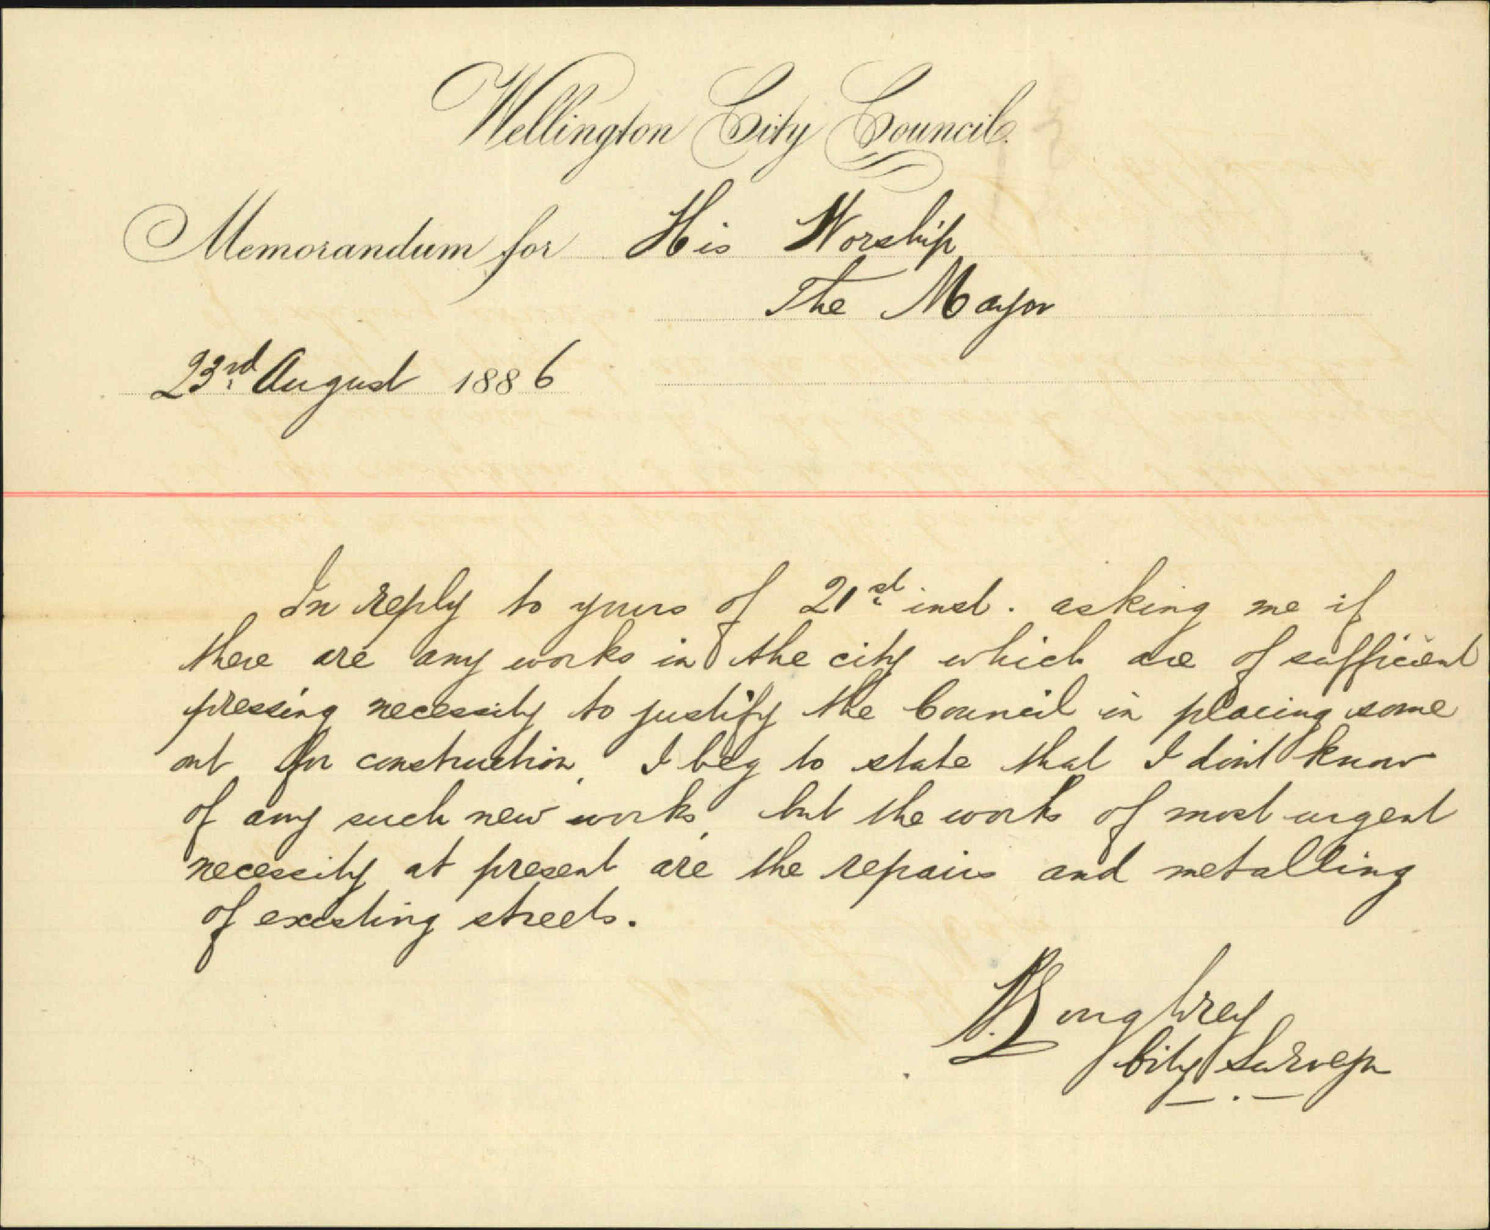 Wellington City Council.
Memorandum for His Worship
The Mayor
23rd. August 1886
In reply to yours of 21st inst. asking me if
there are any works in the city which are of sufficient
pressing necessity to justify the Council in placing some
out for construction, I beg to state that I dont know
of any such new works, but the works of most urgent
necessity at present are the repairs and metalling
of existing streets.
Loughrey
City Surveyor